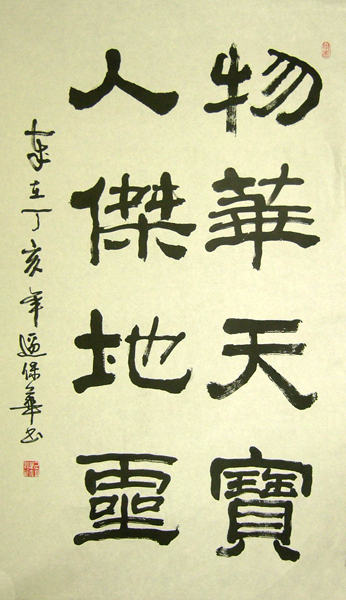 物華天寶
人傑地霊
歲在丁亥年保華书